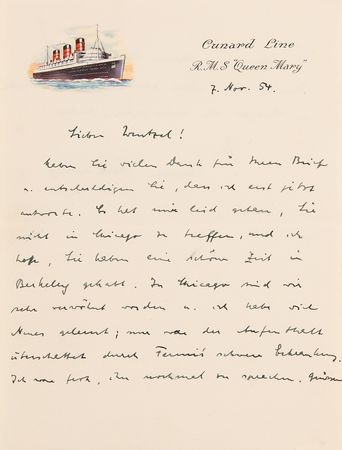 Cunard Line
R.M.S. "Queen Mary"
7. Nov. 54.
Lieber Wentzel!
Haben Sie vielen Dank für Ihren Brief
u. entschuldigen Sie, dass ich erst jetzt
antworte. Es hat mir leid getan, Sie
nicht in Chicago zu treffen, und ich
hoffe, Sie haben eine schöne Zeit in
Berkeley gehabt. In Chicago sind wir
sehr verwöhnt worden u. ich habe viel
Neues gelernt; nur war der Aufenthalt
überschattet durch Fermis schwere Erkrankung.
Ich war froh, ihn nochmal zu sprechen. Grüssen